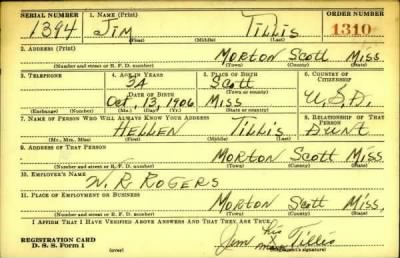 SERIAL NUMBER 1. NAME (Print) ORDER NUMBER
1394 JIM TILLIS 1310
(First) (Middle) (Last)
2. ADDRESS (Print)
MORTON SCOTT MISS
(Number and street or R. F. D. number) (Town) (County) (State)
3. TELEPHONE 4. AGE IN YEARS 5. PLACE OF BIRTH 6. COUNTRY OF CITIZENSHIP
34 SCOTT
DATE OF BIRTH (Town or county)
Oct. 13, 1906 MISS U.S.A.
(Exchange) (Number) (Mo.) (Day) (Yr.) (State or country)
7. NAME OF PERSON WHO WILL ALWAYS KNOW YOUR ADDRESS 8. RELATIONSHIP OF THAT PERSON
HELLEN TILLIS AUNT
(Mr., Mrs., Miss) (First) (Middle) (Last)
9. ADDRESS OF THAT PERSON
MORTON SCOTT MISS
(Number and street or R. F. D. number) (Town) (County) (State)
10. EMPLOYER'S NAME
W. R. ROGERS
11. PLACE OF EMPLOYMENT OR BUSINESS
MORTON SCOTT MISS.
(Number and street or R. F. D. number) (Town) (County) (State)
I AFFIRM THAT I HAVE VERIFIED ABOVE ANSWERS AND THAT THEY ARE TRUE.
REGISTRATION CARD Jim his mark Tillis
D. S. S. Form 1 (over) (Registrant's signature)